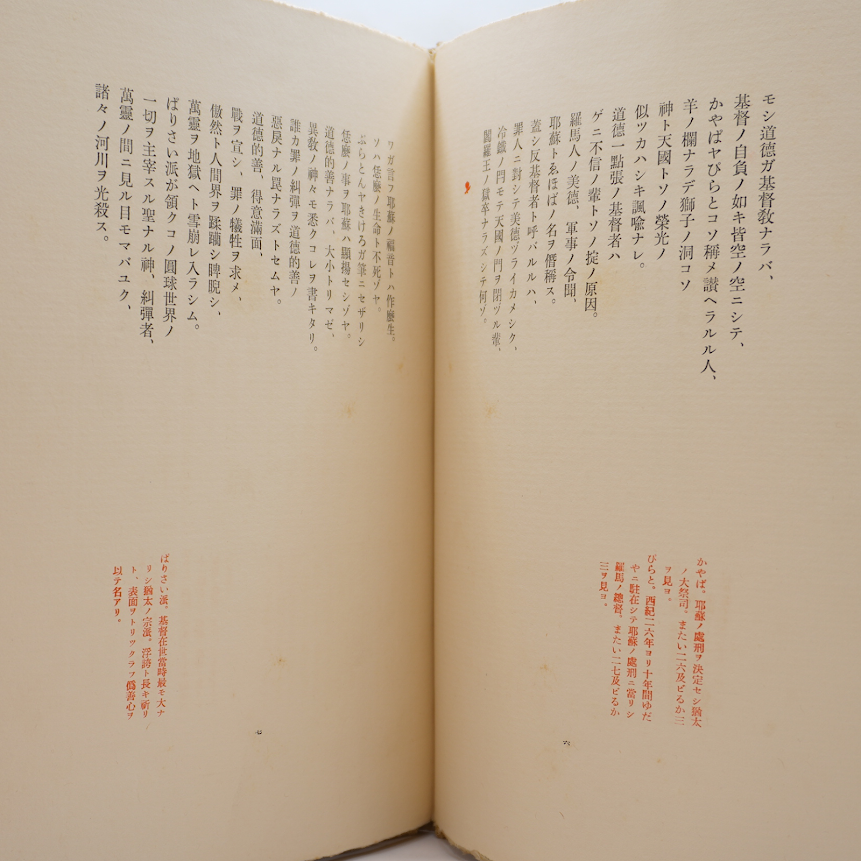 モシ道德ガ基督敎ナラバ、
基督ノ自負ノ如キ皆空ノ空ニシテ、
かやばヤぴらとコソ稱メ讃ヘラルル人、
羊ノ欄ナラデ獅子ノ洞コソ
神ト天國トソノ榮光ノ
似ツカハシキ諷喩ナレ。
道德一點張ノ基督者ハ
ゲニ不信ノ輩トソノ掟ノ原因。
羅馬人ノ美德、軍事ノ令聞、
耶蘇トゑほばノ名ヲ僭稱ス。
蓋シ反基督者ト呼バルルハ、
罪人ニ對シテ美德ヅライカメシク、
冷鐵ノ門モテ天國ノ門ヲ閉ヅル輩、
閻羅王ノ獄卒ナラズシテ何ゾ。
かやば。耶蘇ノ處刑ヲ決定セシ猶太
ノ大祭司。またい二六及ビるか三
ヲ見ヨ。
ぴらと。西紀二六年ヨリ十年間ゆだ
やニ駐在シテ耶蘇ノ處刑ニ當リシ
羅馬ノ總督。またい二七及ビるか
三ヲ見ヨ。
六
ワガ言フ耶蘇ノ福音トハ作麼生。
ソハ恁麼ノ生命ト不死ゾヤ。
ぷらとんヤきけろガ筆ニセザリシ
恁麼ノ事ヲ耶蘇ハ顯揚セシゾヤ。
道德的善ナラバ、大小トリマゼ、
異敎ノ神々モ悉クコレヲ書キタリ。
誰カ罪ノ糾彈ヲ道德的善ノ
惡戾ナル罠ナラズトセムヤ。
道德的善、得意滿面、
戰ヲ宣シ、罪ノ犧牲ヲ求メ、
傲然ト人間界ヲ蹂躪シ睥睨シ、
萬靈ヲ地獄ヘト雪崩レ入ラシム。
ぱりさい派が領クコノ圓球世界ノ
一切ヲ主宰スル聖ナル神、糾彈者、
萬靈ノ間ニ見ル目モマバユク、
諸々ノ河川ヲ光殺ス。
ぱりさい派、基督在世當時最モ大ナ
リシ猶太ノ宗派。浮誇ト長キ祈リ
ト、表面ヲトリツクラフ僞善心ヲ
以テ名アリ。